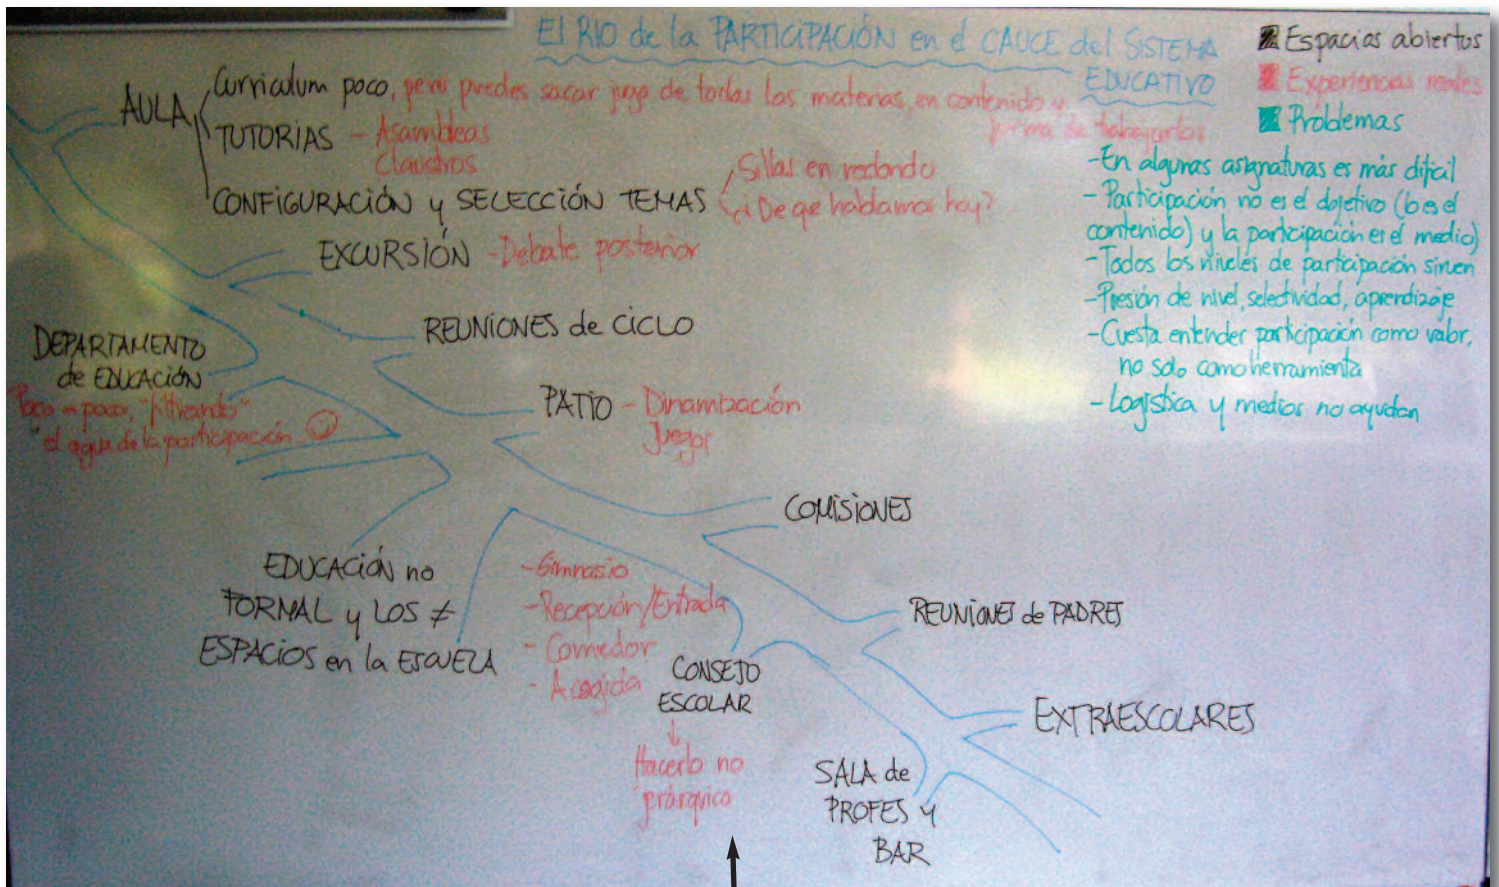 El RIO de la PARTICIPACIÓN en el CAUCE del SISTEMA
EDUCATIVO
Espacios abiertos
Experiencias reales
Problemas
AULA
Curriculum poco, pero puedes sacar jugo de todas las materias, en contenido y
forma de trabajarlos
TUTORIAS - Asambleas
Claustros
CONFIGURACIÓN y SELECCIÓN TEMAS
Sillas en redondo
¿De que hablamos hoy?
EXCURSIÓN - Debate posterior
REUNIONES de CICLO
DEPARTAMENTO
de EDUCACIÓN
Poco a poco, "filtrando"
el agua de la participación
PATIO - Dinamización
Juegos
COMISIONES
EDUCACIÓN no
FORMAL y LOS ≠
ESPACIOS en la ESCUELA
- Gimnasio
- Recepción/Entrada
- Comedor
- Acogida
REUNIONES de PADRES
CONSEJO
ESCOLAR
↓
Hacerlo no
jerárquico
EXTRAESCOLARES
SALA de
PROFES Y
BAR
- En algunas asignaturas es más difícil
- Participación no es el objetivo (lo es el
contenido) y la participación es el medio)
- Todos los niveles de participación sirven
- Presión de nivel, selectividad, aprendizaje
- Cuesta entender participación como valor,
no solo como herramienta
- Logística y medios no ayudan